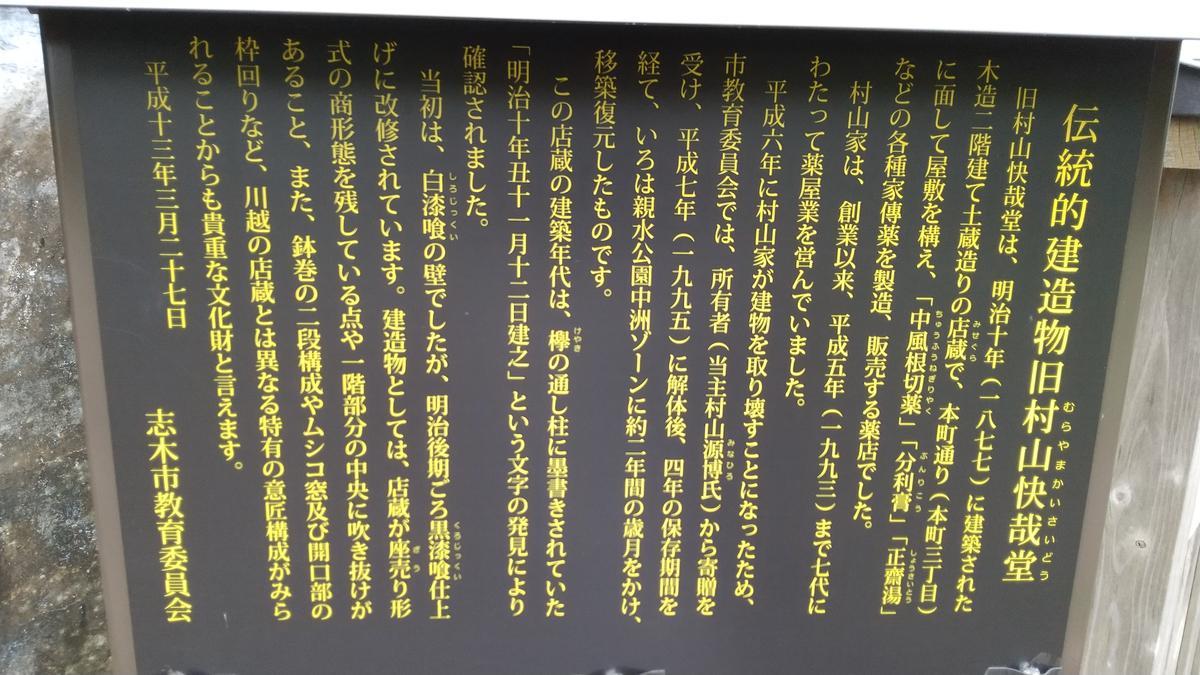 伝統的建造物旧村山快哉堂
むらやまかいさいどう
旧村山快哉堂は、明治十年（一八七七）に建築された
木造二階建て土蔵造りの店蔵で、本町通り（本町三丁目）
みせぐら
に面して屋敷を構え、「中風根切薬」「分利膏」「正齋湯」
ちゅうふうねぎりやく
ぶんりこう
しょうさいとう
などの各種家傳薬を製造、販売する薬店でした。
村山家は、創業以来、平成五年（一九九三）まで七代に
わたって薬屋業を営んでいました。
平成六年に村山家が建物を取り壊すことになったため、
市教育委員会では、所有者（当主村山源博氏）から寄贈を
みなひろ
受け、平成七年（一九九五）に解体後、四年の保存期間を
経て、いろは親水公園中洲ゾーンに約二年間の歳月をかけ、
移築復元したものです。
この店蔵の建築年代は、欅の通し柱に墨書きされていた
けやき
「明治十年丑十一月十二日建之」という文字の発見により
確認されました。
当初は、白漆喰の壁でしたが、明治後期ごろ黒漆喰仕上
しろじっくい
くろじっくい
げに改修されています。建造物としては、店蔵が座売り形
ざう
式の商形態を残している点や一階部分の中央に吹き抜けが
あること、また、鉢巻の二段構成やムシコ窓及び開口部の
枠回りなど、川越の店蔵とは異なる特有の意匠構成がみら
れることからも貴重な文化財と言えます。
平成十三年三月二十七日
志木市教育委員会